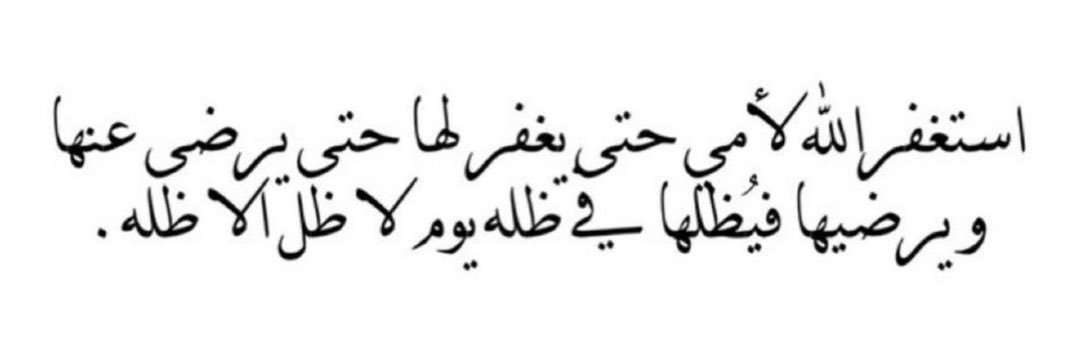 استغفر الله لأمي حتى يغفر لها حتى يرضى عنها
ويرضيها فيُظلها في ظله يوم لا ظل الا ظله .